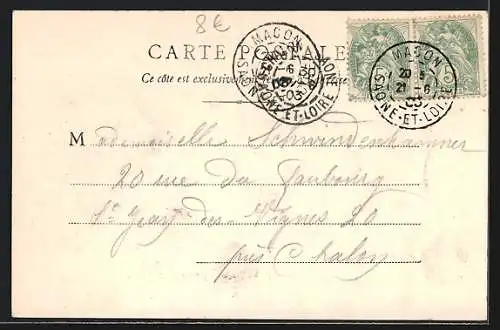 8€
CARTE POSTALE
Ce côté est exclusivement
MACON
SAONE-ET-LOIRE
MACON
20 5
21 -6
03
SAONE-ET-LOIRE
Mademoiselle Schwindenhammer
20 rue du Faubourg
St Jean-des-Vignes 20
près Chalon